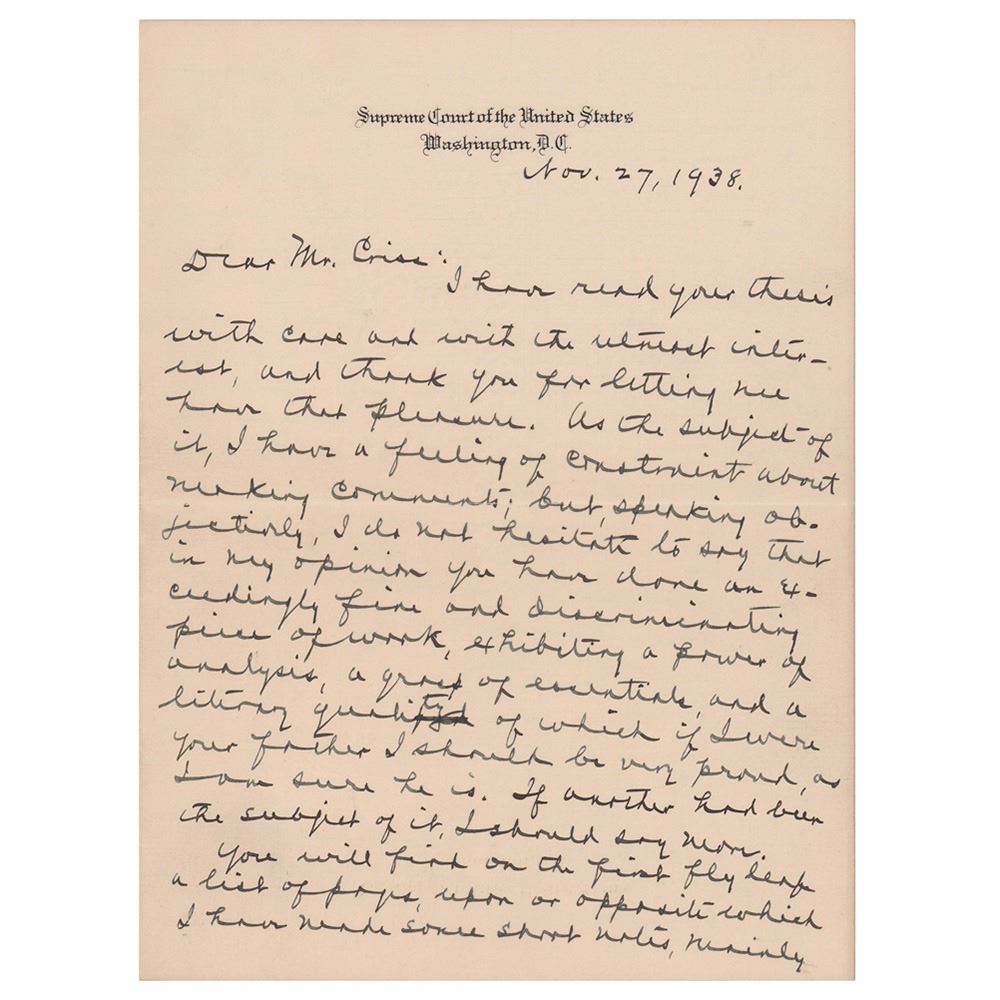 Supreme Court of the United States
Washington, D.C.
Nov. 27, 1938.
Dear Mr. Criss:
I have read your thesis
with care and with the utmost inter-
est, and thank you for letting me
have that pleasure. As the subject of
it, I have a feeling of constraint about
making comments; but, speaking ob-
jectively, I do not hesitate to say that
in my opinion you have done an ex-
ceedingly fine and discriminating
piece of work, exhibiting a power of
analysis, a grasp of essentials, and a
literary quality of which if I were
your father I should be very proud, as
I am sure he is. If another had been
the subject of it, I should say more.
You will find on the first fly leaf
a list of pages, upon or opposite which
I have made some short notes, mainly